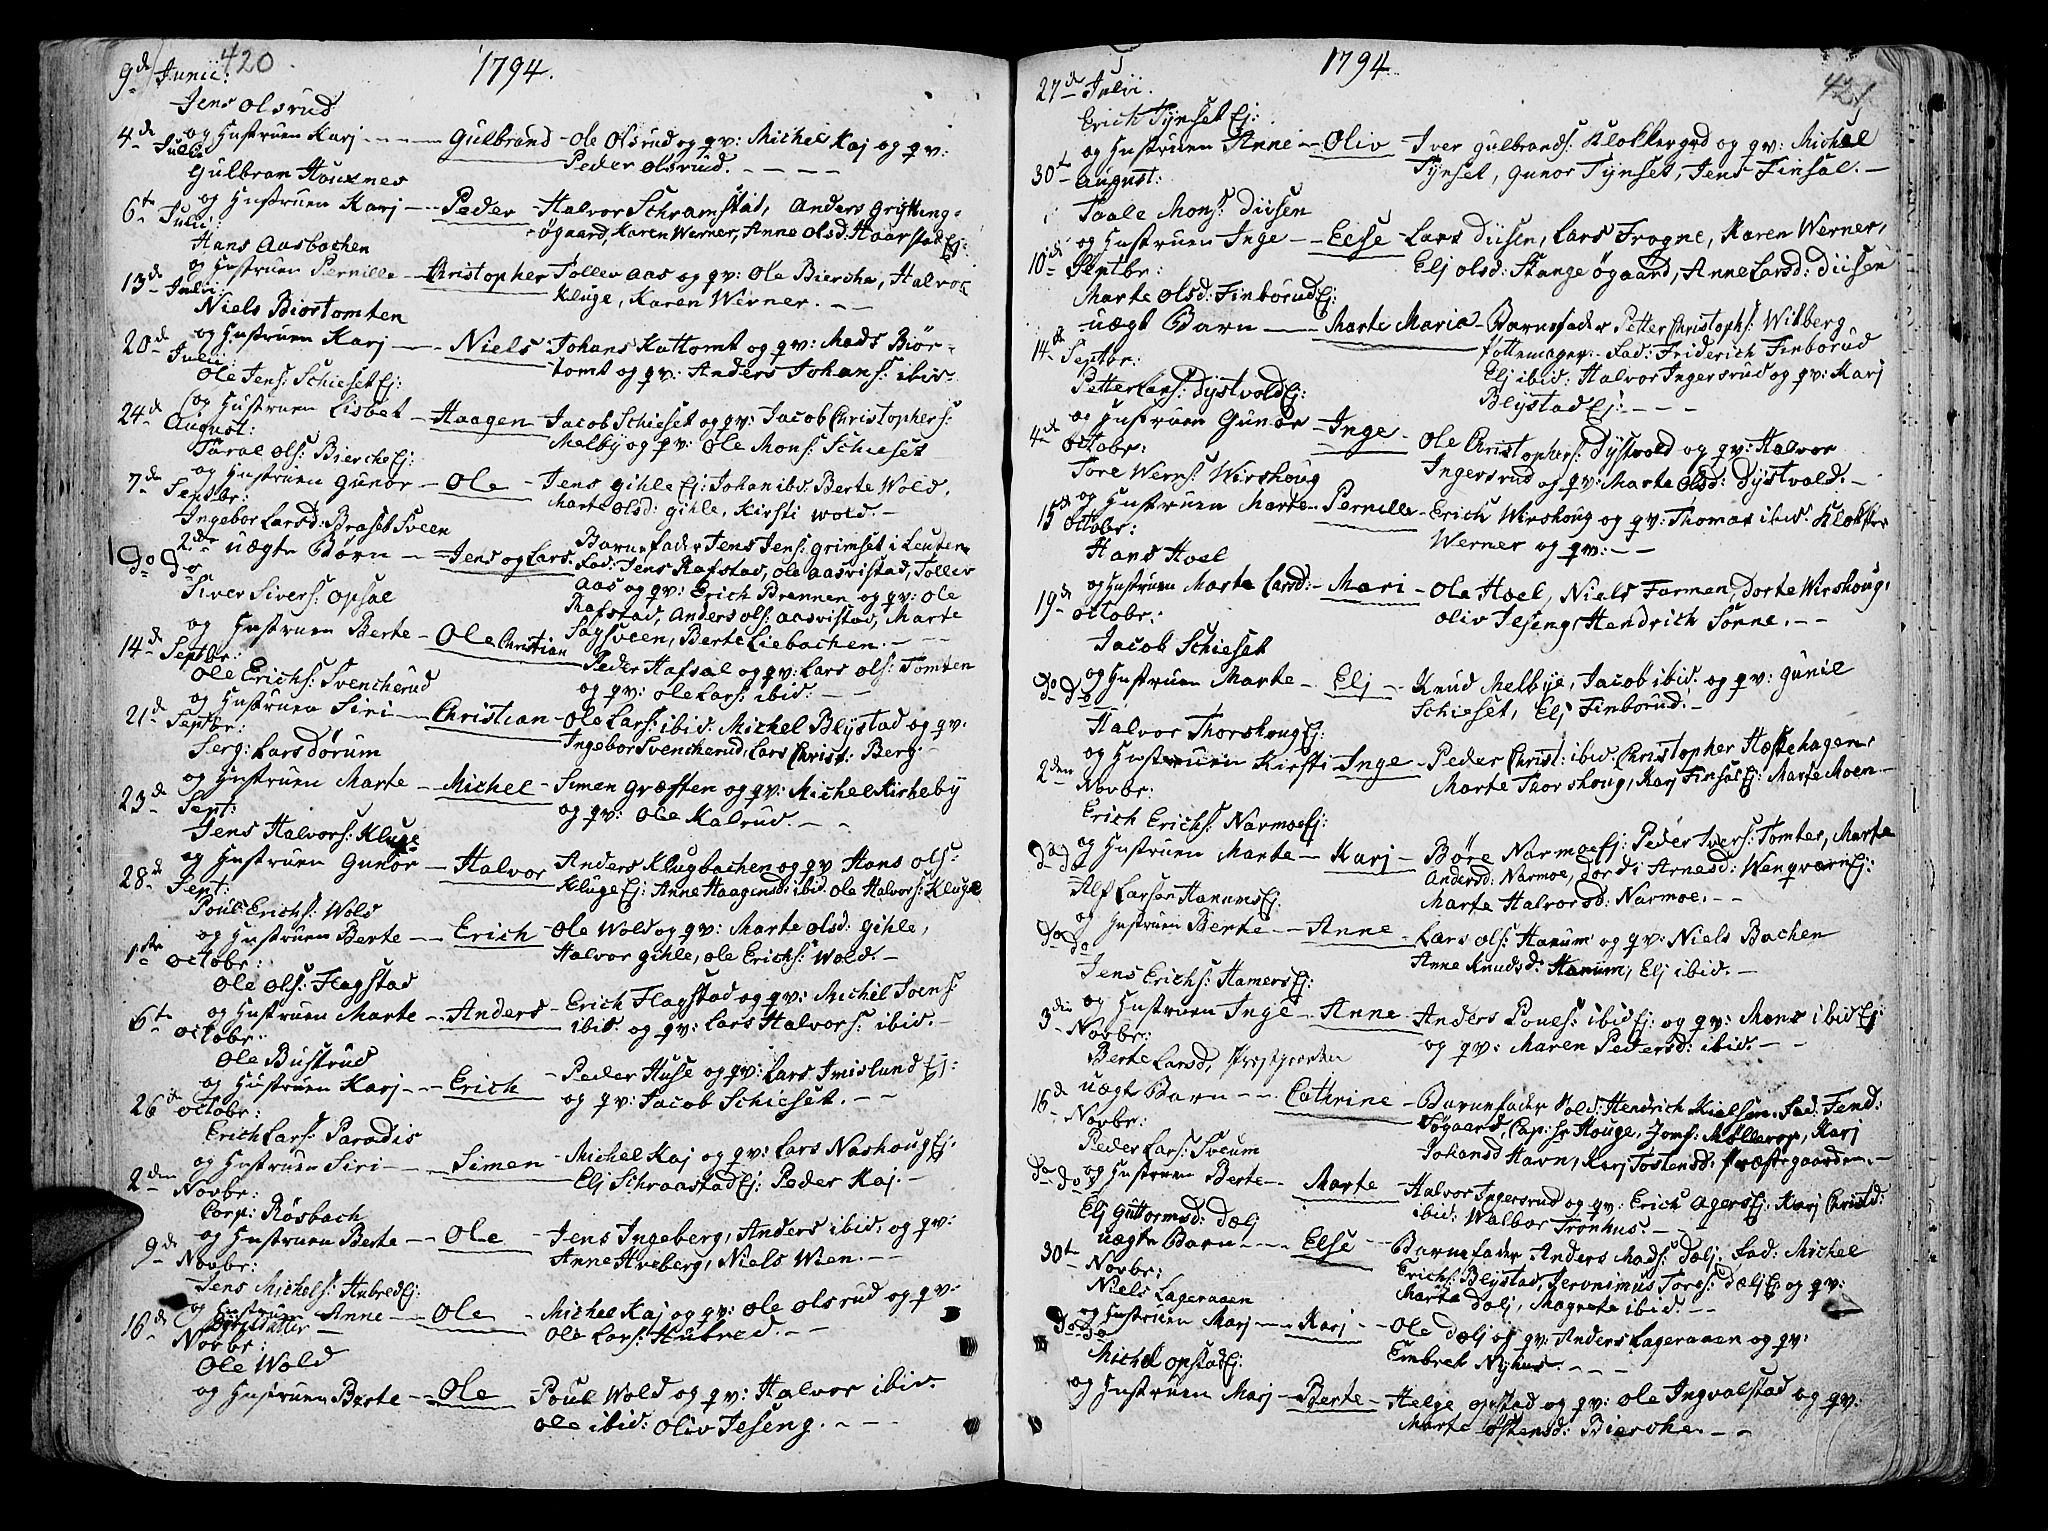 420
1794.
9de Junii:
Jens Olsrud
og Hustruen Karj - Gulbrand - Ole Olsrud og qv: Michel Kaj og qv:
Peder Olsrud.
4de Julii
Gulbran Houxnes
og Hustruen Karj - Peder - Halvor Schramstad, Anders Grytting-
øgaard, Karen Werner, Anne Olsd: Haarstad Ej:
6te Julii:
Hans Aasbachen
og Hustruen Pernille - Christopher Tollev Aas og qv: Ole Biercke, Halvor
Kluge, Karen Werner.
13de Julii:
Niels Biørtomten
og Hustruen Karj - Niels Johans Kattomt og qv: Mads Biør-
tomt og qv: Anders Johans: ibid-
20de Julii:
Ole Jens: Schieset Ej:
og Hustruen Lisbet - Haagen - Jacob Schieset og qv: Jacob Christophers:
Melby og qv: Ole Mons: Schieset
24de August:
Taral Ols: Bierche Ej:
og Hustruen Gunor - Ole - Jens Gihle Ej: Johan ibd: Berte Wold,
Marte Olsd: Gihle, Kirsti Wold.
7de Septbr:
Ingebor Larsd: Braset Sveen
2de uægte Børn - Jens og Lars. Barnefader Jens Jens: Grimset i Leuten
Fad: Jens Rafstad, Ole Aasvistad, Tollev
Aas og qv: Erich Brennen og qv: Ole
Rafstad, Anders Ols: Aasvistad, Marte
Sagsveen, Berte Liebachen.
do do
Siver Sivers: Opsal
og Hustruen Berte - Ole Christian
Peder Hafsal og qv: Lars Ols: Tomten
og qv: Ole Lars: ibid.
14de Septbr:
Ole Erichs: Svencherud
og Hustruen Siri - Christian - Ole Lars: ibid: Michel Blystad og qv:
Ingebor Svencherud, Lars Christ: Berg.
21de Septbr:
Serg: Lars Dørum
og Hustruen Marte - Michel - Simen Græften og qv: Michel Kirkeby
og qv: Ole Kalrud.
23de Sept:
Jens Halvors: Kluge
og Hustruen Gunor - Halvor Anders Klugbachen og qv Hans Ols:
Kluge Ej: Anne Haagensd: ibid. Ole Halvors: Kluge
28de Sept:
Poul Erichs: Wold
og Hustruen Berte - Erich - Ole Wold og qv: Marte Olsd: Gihle,
Halvor Gihle, Ole Erichs: Wold.
1ste Octobr:
Ole Ols: Flagstad
og Hustruen Marte - Anders - Erich Flagstad og qv: Michel Svens:
ibid og qv: Lars Halvors: ibid.
6te Octobr:
Ole Bustrud
og Hustruen Karj - Erich - Peder Huse og qv: Lars Imislund Ej:
og qv: Jacob Schieset.
26de Octobr:
Erich Lars: Paradis
og Hustruen Siri - Simen - Michel Kaj og qv: Lars Nashoug Ej:
Elj Schraastad Ej: Peder Kaj.
2den Novbr:
Corp: Røsbach
og Hustruen Berte - Ole - Jens Ingeberg, Anders ibid, og qv:
Anne Arberg, Niels Wien.
9de Novbr:
Jens Michels: Hubred Ej:
og Hustruen Anne - Ole - Michel Kaj og qv: Ole Olsrud og qv:
Ole Lars: Hubred.
16de Novbr:
Ole Wold
og Hustruen Berte - Ole - Poul Wold og qv: Halvor ibid.
Ole ibid: Oliv Jeseng.
421
1794
27de Julii.
Erich Tynset Ej:
og Hustruen Anne - Oliv - Iver Gulbrands: Klokkergrd og qv: Michel
Tynset, Gunor Tynset, Jens Finsal.
30te August:
Taale Mons: Diisen
og Hustruen Inge - Else - Lars Diisen, Lars Frogne, Karen Werner,
Elj Olsd: Stange øgaard, Anne Larsd: Diisen
10de Septbr:
Marte Olsd: Finborud Ej:
uægt Barn - Marte Maria - Barnefader Petter Christophs: Widberg
Pottemager. Fad: Friderich Finborud
Elj ibid: Halvor Ingersrud og qv: Karj
Blystad Ej:
14de Septbr:
Petter Lars: Dystvold Ej:
og Hustruen Gunor - Inge - Ole Christophers: Dystvold og qv: Halvor
Ingersrud og qv: Marte Olsd: Dystvold.
4de Octobr:
Tore Werns: Wirshoug
og Hustruen Marte - Pernille - Erich Wirshoug og qv: Thomas ibid Klokker
Werner og qv:
15de Octobr:
Hans Hoel
og Hustruen Marte Larsd: - Mari - Ole Hoel, Niels Farmen, Dorte Wirshoug,
Oliv Jeseng, Hendrich Tønne.
19de Octobr:
Jacob Schieset
og Hustruen Marte - Elj - Knud Melbye, Jacob ibid. og qv: Gunil
Schieset, Elj Finborud.
do do
Halvor Thorshoug Ej:
og Hustruen Kirsti Inge - Peder Christ: ibid Christopher Hæstehagen,
Marte Thorshoug, Karj Finsal Ej: Marte Moen
2den Novbr:
Erich Erichs: Narmoe Ej:
og Hustruen Marte - Karj - Børe Narmoe Ej: Peder Ivers: Tomter, Marte
Andersd: Narmoe, Dordi Arnesd: Wenqværn Ej:
Marte Halvorsd: Narmoe.
do do
Alf Larsen Hanum Ej:
og Hustruen Berte - Anne - Lars Ols: Hanum og qv: Niels Bachen
Anne Knudsd: Hanum, Elj ibid.
do do
Jens Erichs: Hamers Ej:
og Hustruen Inge - Anne - Anders Pouls: ibid Ej: og qv: Mons ibid Ej:
og qv: Maren Pedersd: ibid.
3die Novbr:
Berte Larsd, Præstgaarden
uægt Barn - Cathrine - Barnefader Sold: Hendrich Kielsen. Fad: Fend:
Søgaard, Cap: Sr Houge, Jomf: Møllerop, Karj
Johansd Havn, Karj Tostensd: Præstegaarden.
16de Novbr:
Peder Lars: Sveum
og Hustruen Berte - Marte - Halvor Ingersrud og qv: Erich Agers Ej: Karj Christd:
ibid: Walbor Tronhus.
do do
Elj Guttormsd: Dælj
uægte Barn - Else - Barnefader Anders Mads: Dælj. Fad: Michel
Erichs: Blystad, Jeronimus Tores: Dælj Ej og qv:
Marte Dælj, Magrete ibid.
30te Novbr:
Niels Lageraaen
og Hustruen Marj - Karj - Ole Dælj og qv: Anders Lageraaen og qv:
Embret Nyhus.
do do
Michel Opstad Ej:
og Hustruen Marj - Berte - Helge Opstad og qv: Ole Ingvalstad og qv:
Marte Østensd: Bierche.